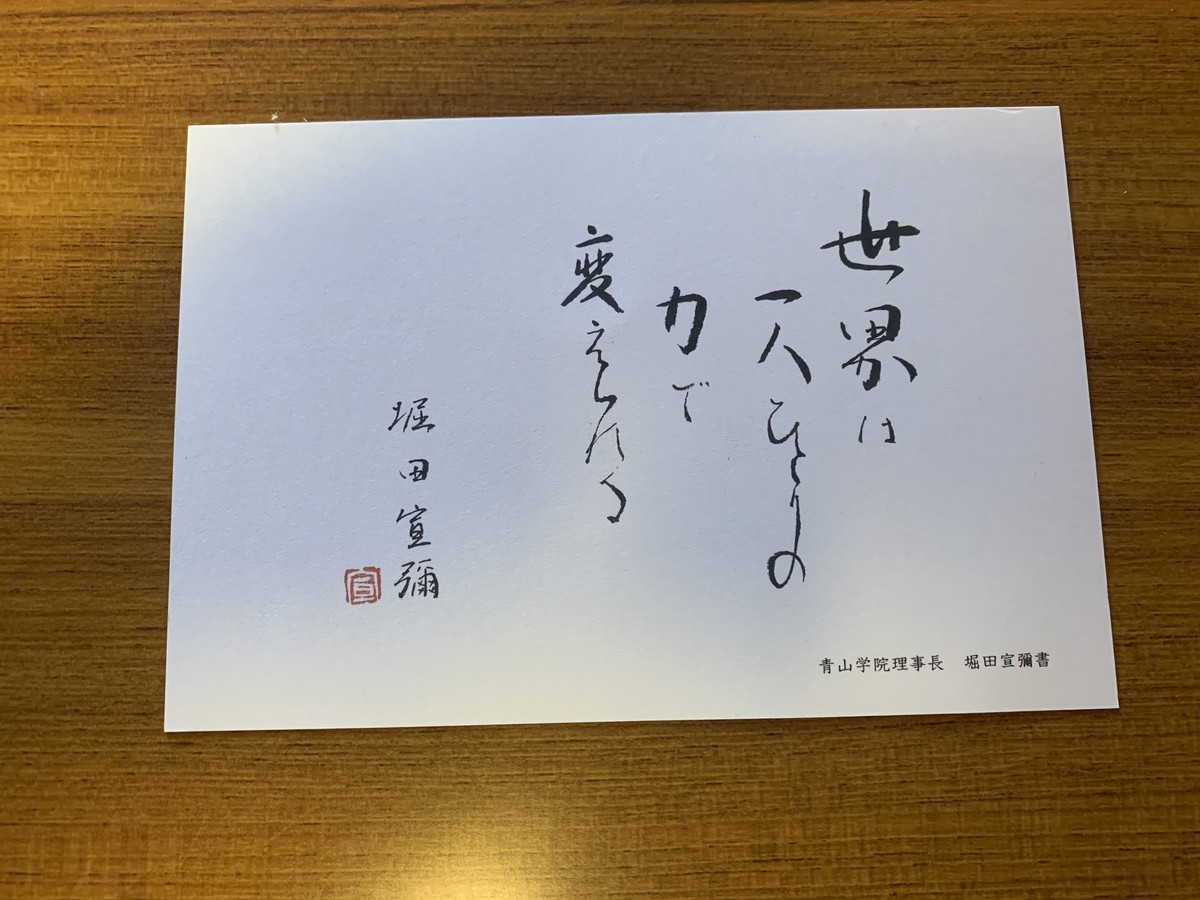 世界は
一人ひとりの
力で
変えられる
堀田宣彌
宣
青山学院理事長　堀田宣彌書